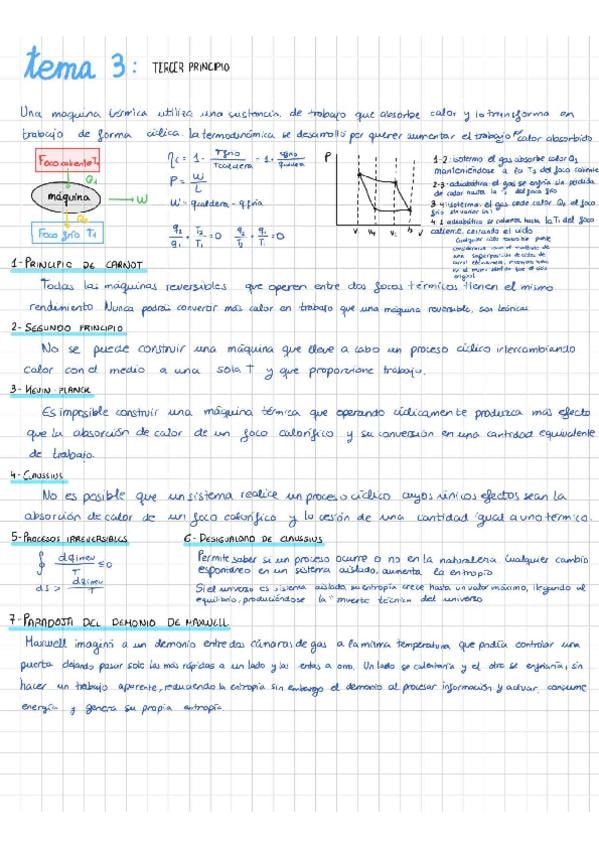 tema 3: TERCER PRINCIPIO
Una maquina térmica utiliza una sustancia de trabajo que absorbe calor y lo transforma en
trabajo de forma cíclica. La termodinámica se desarrolló por querer aumentar el trabajo calor absorbido
Foco caliente
Q1
máquina
W
Foco frío T1
P = W/L
W = qcaldera - qfria
q2/q1 + T2/T1 = 0
P
1-2: isotermo el gas absorbe calor Q1
manteniéndose a la T2 del foco caliente
2-3: adiabática el gas se enfría sin pérdida
de calor hasta la T del foco frío
3-4: isotermo: el gas cede calor Q2 al foco
4-1 adiabática se calienta hasta la T1 del foco
caliente, cerrando el ciclo
1- PRINCIPIO DE CARNOT
Todas las máquinas reversibles que operen entre dos focos térmicos tienen el mismo
rendimiento Nunca podrás convertir más calor en trabajo que una máquina reversible, son teóricas
2- SEGUNDO PRINCIPIO
No se puede construir una máquina que lleve a cabo un proceso cíclico intercambiando
calor con el medio a una sola T y que proporcione trabajo.
3- KEVIN-PLANCK
Es imposible construir una máquina térmica que operando cíclicamente produzca mas efecto
que la absorción de calor de un foco calorífico y su conversión en una cantidad equivalente
de trabajo.
4- CLAUSSIUS
No es posible que un sistema realice un proceso cíclico cuyos únicos efectos sean la
absorción de calor de un foco calorífico y la cesión de una cantidad igual a uno térmico.
5- PROCESOS IRREVERSIBLES
∮ dqirrev/T ≤ 0
dS > dqirrev/T
6- DESIGUALDAD DE CLAUSSIUS
Permite saber si un proceso ocurre o no en la naturaleza. Cualquier cambio
espontáneo en un sistema aislado, aumenta la entropía
Si el universo es sistema aislado, su entropía crece hasta un valor máximo, llegando al
equilibrio, produciéndose la "muerte técnica del universo
7- PARADOJA DEL DEMONIO DE MAXWELL
Maxwell imaginó a un demonio entre dos cámaras de gas a la misma temperatura que podía controlar una
puerta dejando pasar solo las más rápidas a un lado y las lentas a otro. Un lado se calentaría y el otro se enfriaría, sin
hacer un trabajo aparente, reduciendo la entropía sin embargo el demonio al procesar información y actuar, consume
energía y genera su propia entropía